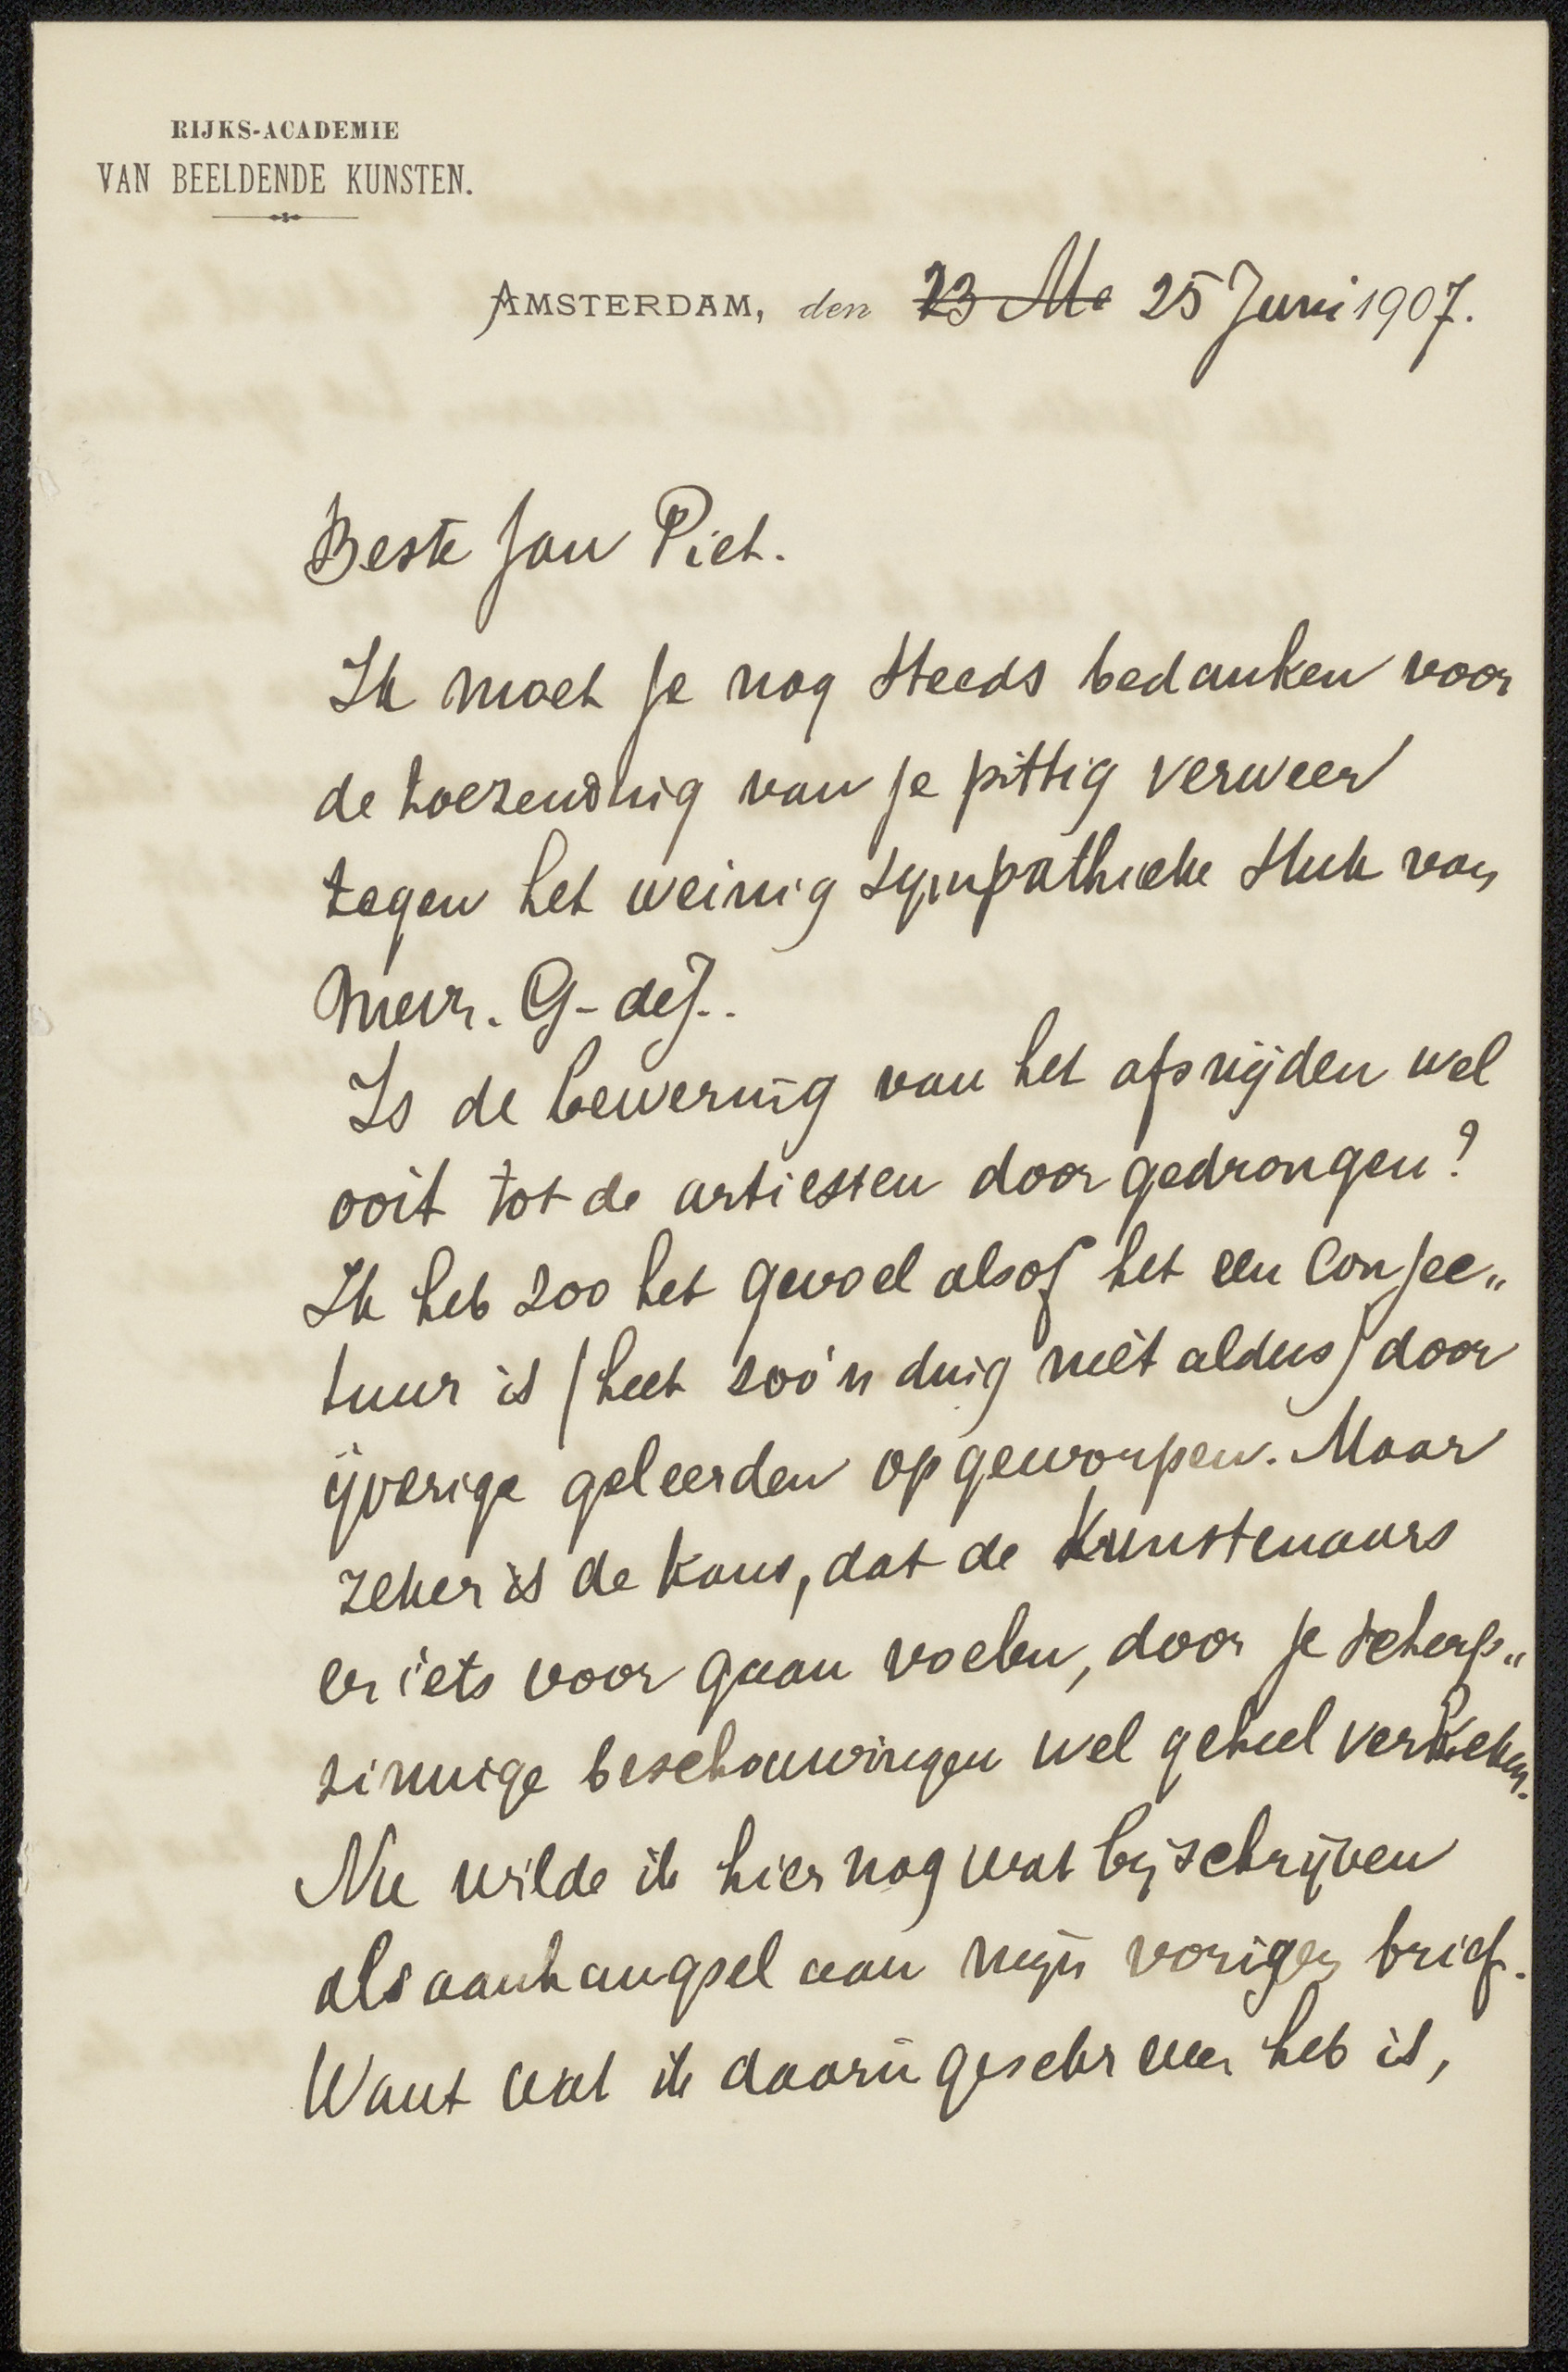 RIJKS-ACADEMIE
VAN BEELDENDE KUNSTEN.
AMSTERDAM, den 23 Me 25 Juni 1907.
Beste Jan Piet.
Ik moet je nog steeds bedanken voor
de toezending van je pittig verweer
tegen het weinig sympathieke stuk van
Mevr. G-deJ..
Is de bewering van het afsnijden wel
ooit tot de artiesten doorgedrongen?
Ik heb zoo het gevoel alsof het een conjec„
tuur is (heet zoo'n ding niet aldus) door
ijverige geleerden opgeworpen. Maar
zeker is de kans, dat de kunstenaars
er iets voor gaan voelen, door je scherp„
zinnige beschouwingen wel geheel verkeken.
Nu wilde ik hier nog wat bijschrijven
als aanhangsel aan mijn vorigen brief.
Want wat ik daarin geschreven heb is,